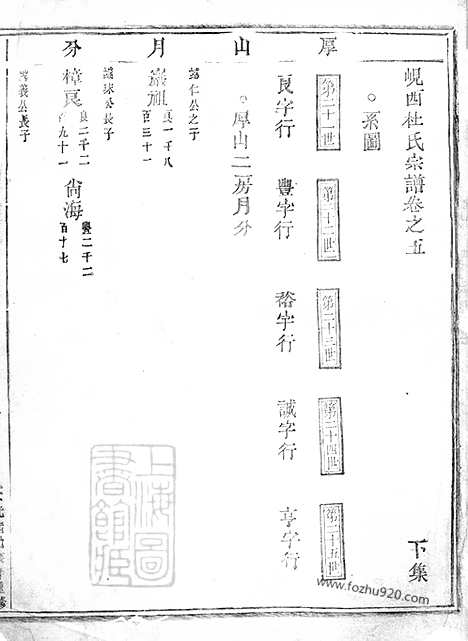 峴西杜氏宗譜卷之五
下集
○系圖
第二十一世
第二十二世
第二十三世
第二十四世
第二十五世
厚
山
月
分
良字行
豐字行
裕字行
誠字行
亨字行
○厚山二房月分
諱仁公之子
崇祖
良一千八
百三十一
長子
樟良
良二千二
百九十一
尚海
豐二千二
百十七
義公長子
上海圖書館藏
www.fozhu920.com